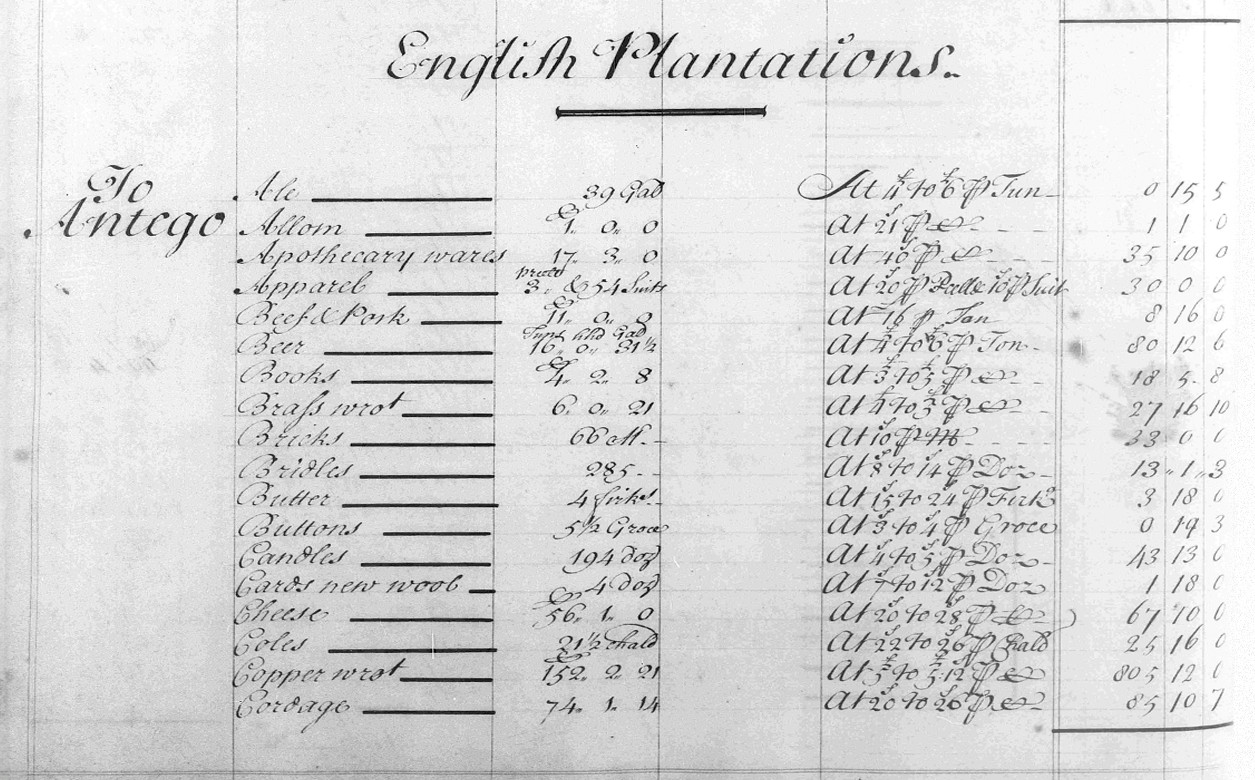 English Plantations.
To
Antego
Ale 39 Gall At 4 to 6 £ p Tun 0 15 5
Allom C 1 " 0 " 0 At 21 s p C 1 1 0
Apothecary wares 17 " 3 " 0 At 40 s p C 35 10 0
Apparel 3 " & 54 Suits At 20 s p 10 s p Suit 30 0 0
Beef & Pork C 11 " 0 " 0 At 16 s p 8 16 0
Beer Tuns hhd Gall 16 " 0 " 31½ At 4 to 6 £ p Ton 80 12 6
Books C 4 " 2 " 8 At 3 to 5 £ p C 18 5 8
Brass wrot 6 " 0 " 21 At 4 to 5 £ p C 27 16 10
Bricks 66 M At 10 s p M 33 0 0
Bridles 285 At 8 to 14 s p Doz 13 " 1 " 3
Butter 4 firks At 15 to 24 s p Firk 3 18 0
Buttons 5½ Groce At 3 to 4 s p Groce 0 19 3
Candles 194 doz At 4 to 5 s p Doz 43 13 0
Cards new wool 4 doz At 7 to 12 s p Doz 1 18 0
Cheese C 56 " 1 " 0 At 20 to 28 s p C 67 10 0
Coles 21½ Chald At 22 to 26 s p Chald 25 16 0
Copper wrot C 152 " 2 " 21 At 5 to 5:12 £ p C 805 12 0
Cordage 74 " 1 " 14 At 20 to 26 s p C 85 10 7